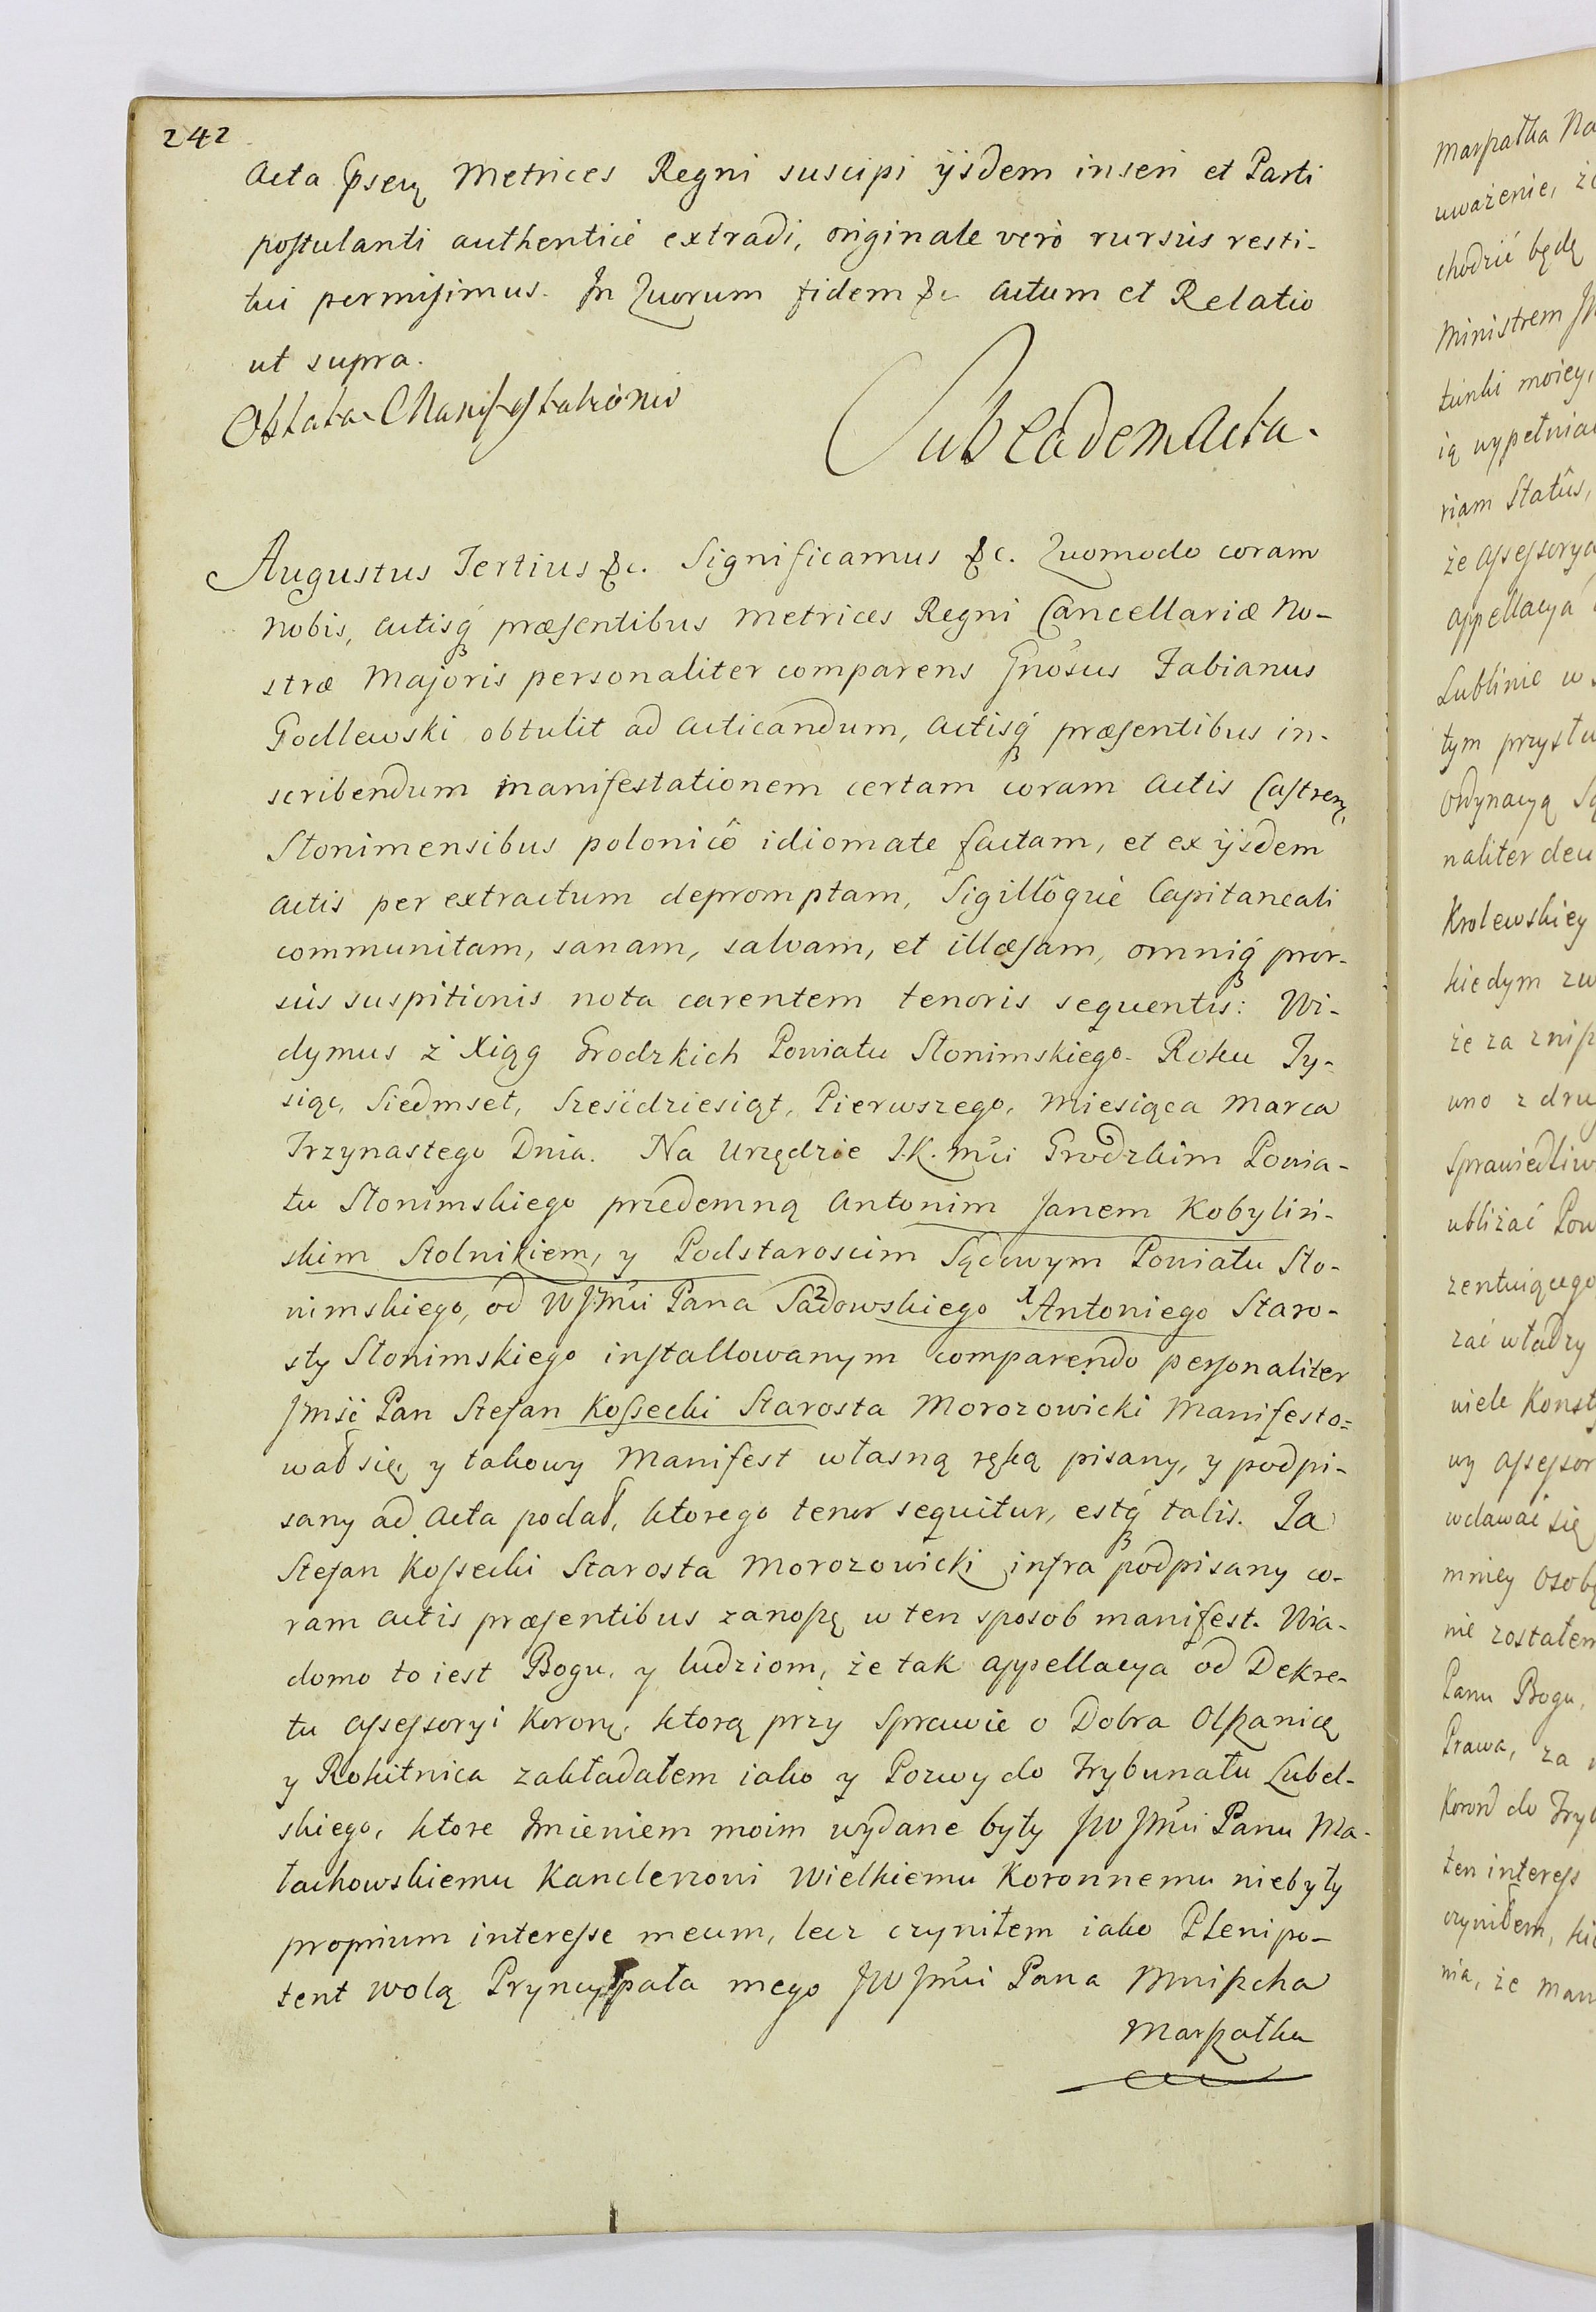 242
Acta psen Metrices Regni suscipi ijsdem inseri et Parti
postulanti authenticè extradi, originale verò rursus resti-
tui permisimus. In Quorum fidem &c. Actum et Relatio
ut supra.
Oblata Manifestationis
Sub eadem Acta.
Augustus Tertius &c. Significamus &c. Quomodo coram
Nobis, Actisq præsentibus Metrices Regni Cancellariæ No-
stræ Majoris personaliter comparens Gnosus Fabianus
Godlewski obtulit ad Acticandum, Actisq præsentibus in-
scribendum manifestationem certam coram Actis Castren
Słonimensibus polonicô idiomate factam, et ex ijsdem
Actis per extractum depromptam, Sigillôque Capitaneali
communitam, sanam, salvam, et illæsam, omniq pror-
sus suspitionis nota carentem tenoris sequentis: Wi-
dymus z Xiąg Grodzkich Powiatu Słonimskiego. Roku Ty-
siąc, Siedmset, Szescdziesiąt, Pierwszego, Miesiąca Marca
Trzynastego Dnia. Na Urzędzie J.K.Mci Grodzkim Powia-
tu Słonimskiego przedemną Antonim Janem Kobyliń-
skim Stolnikiem, y Podstaroscim Sądowym Powiatu Sło-
nimskiego, od WJMci Pana Sa2dowskiego 1Antoniego Staro-
sty Słonimskiego installowanym comparendo personaliter
Jmść Pan Stefan Kossecki Starosta Morozowicki Manifesto=
wał się y takowy Manifest własną ręką pisany, y podpi-
sany ad Acta podał, ktorego tenor sequitur, estq talis. Ja
Stefan Kossecki Starosta Morozowicki infra podpisany co-
ram Actis præsentibus zanoszę w ten sposob manifest. Wia-
domo to iest Bogu, y ludziom, że tak appellacya od Dekre-
tu Assessoryi Koron, ktorą przy Sprawie o Dobra Olszanicę
y Rokitnica zakładałem iako y Pozwy do Trybunału Lubel-
skiego, ktore Imieniem moim wydane były JWJMci Panu Ma-
łachowskiemu Kanclerzowi Wielkiemu Koronnemu niebyły
proprium interesse meum, lecz czyniłem iako Plenipo-
tent wolą Pryncypała mego JWJMci Pana Mniszcha
Marszałka
Marszałka Na
uważenie, że
chodzić będę
Ministrem JW
łunki moiey,
ią wypełniac
riam Statûs,
że Assessorya
Appellacya
Lublinie w
tym przysłu
Ordynacyą Są
naliter deu
Krolewskiey
kiedym zw
że za znisz
uno z dru
Sprawiedliw
ubliżać Pow
zentuiącego
zać władzy
wiele Konst
wy Assessor
wdawać się
mniey Osobę
nie zostałem
Panu Bogu,
Prawa, za
Koron do Tryb
ten interess
czyniłem, ki
nia, że Man